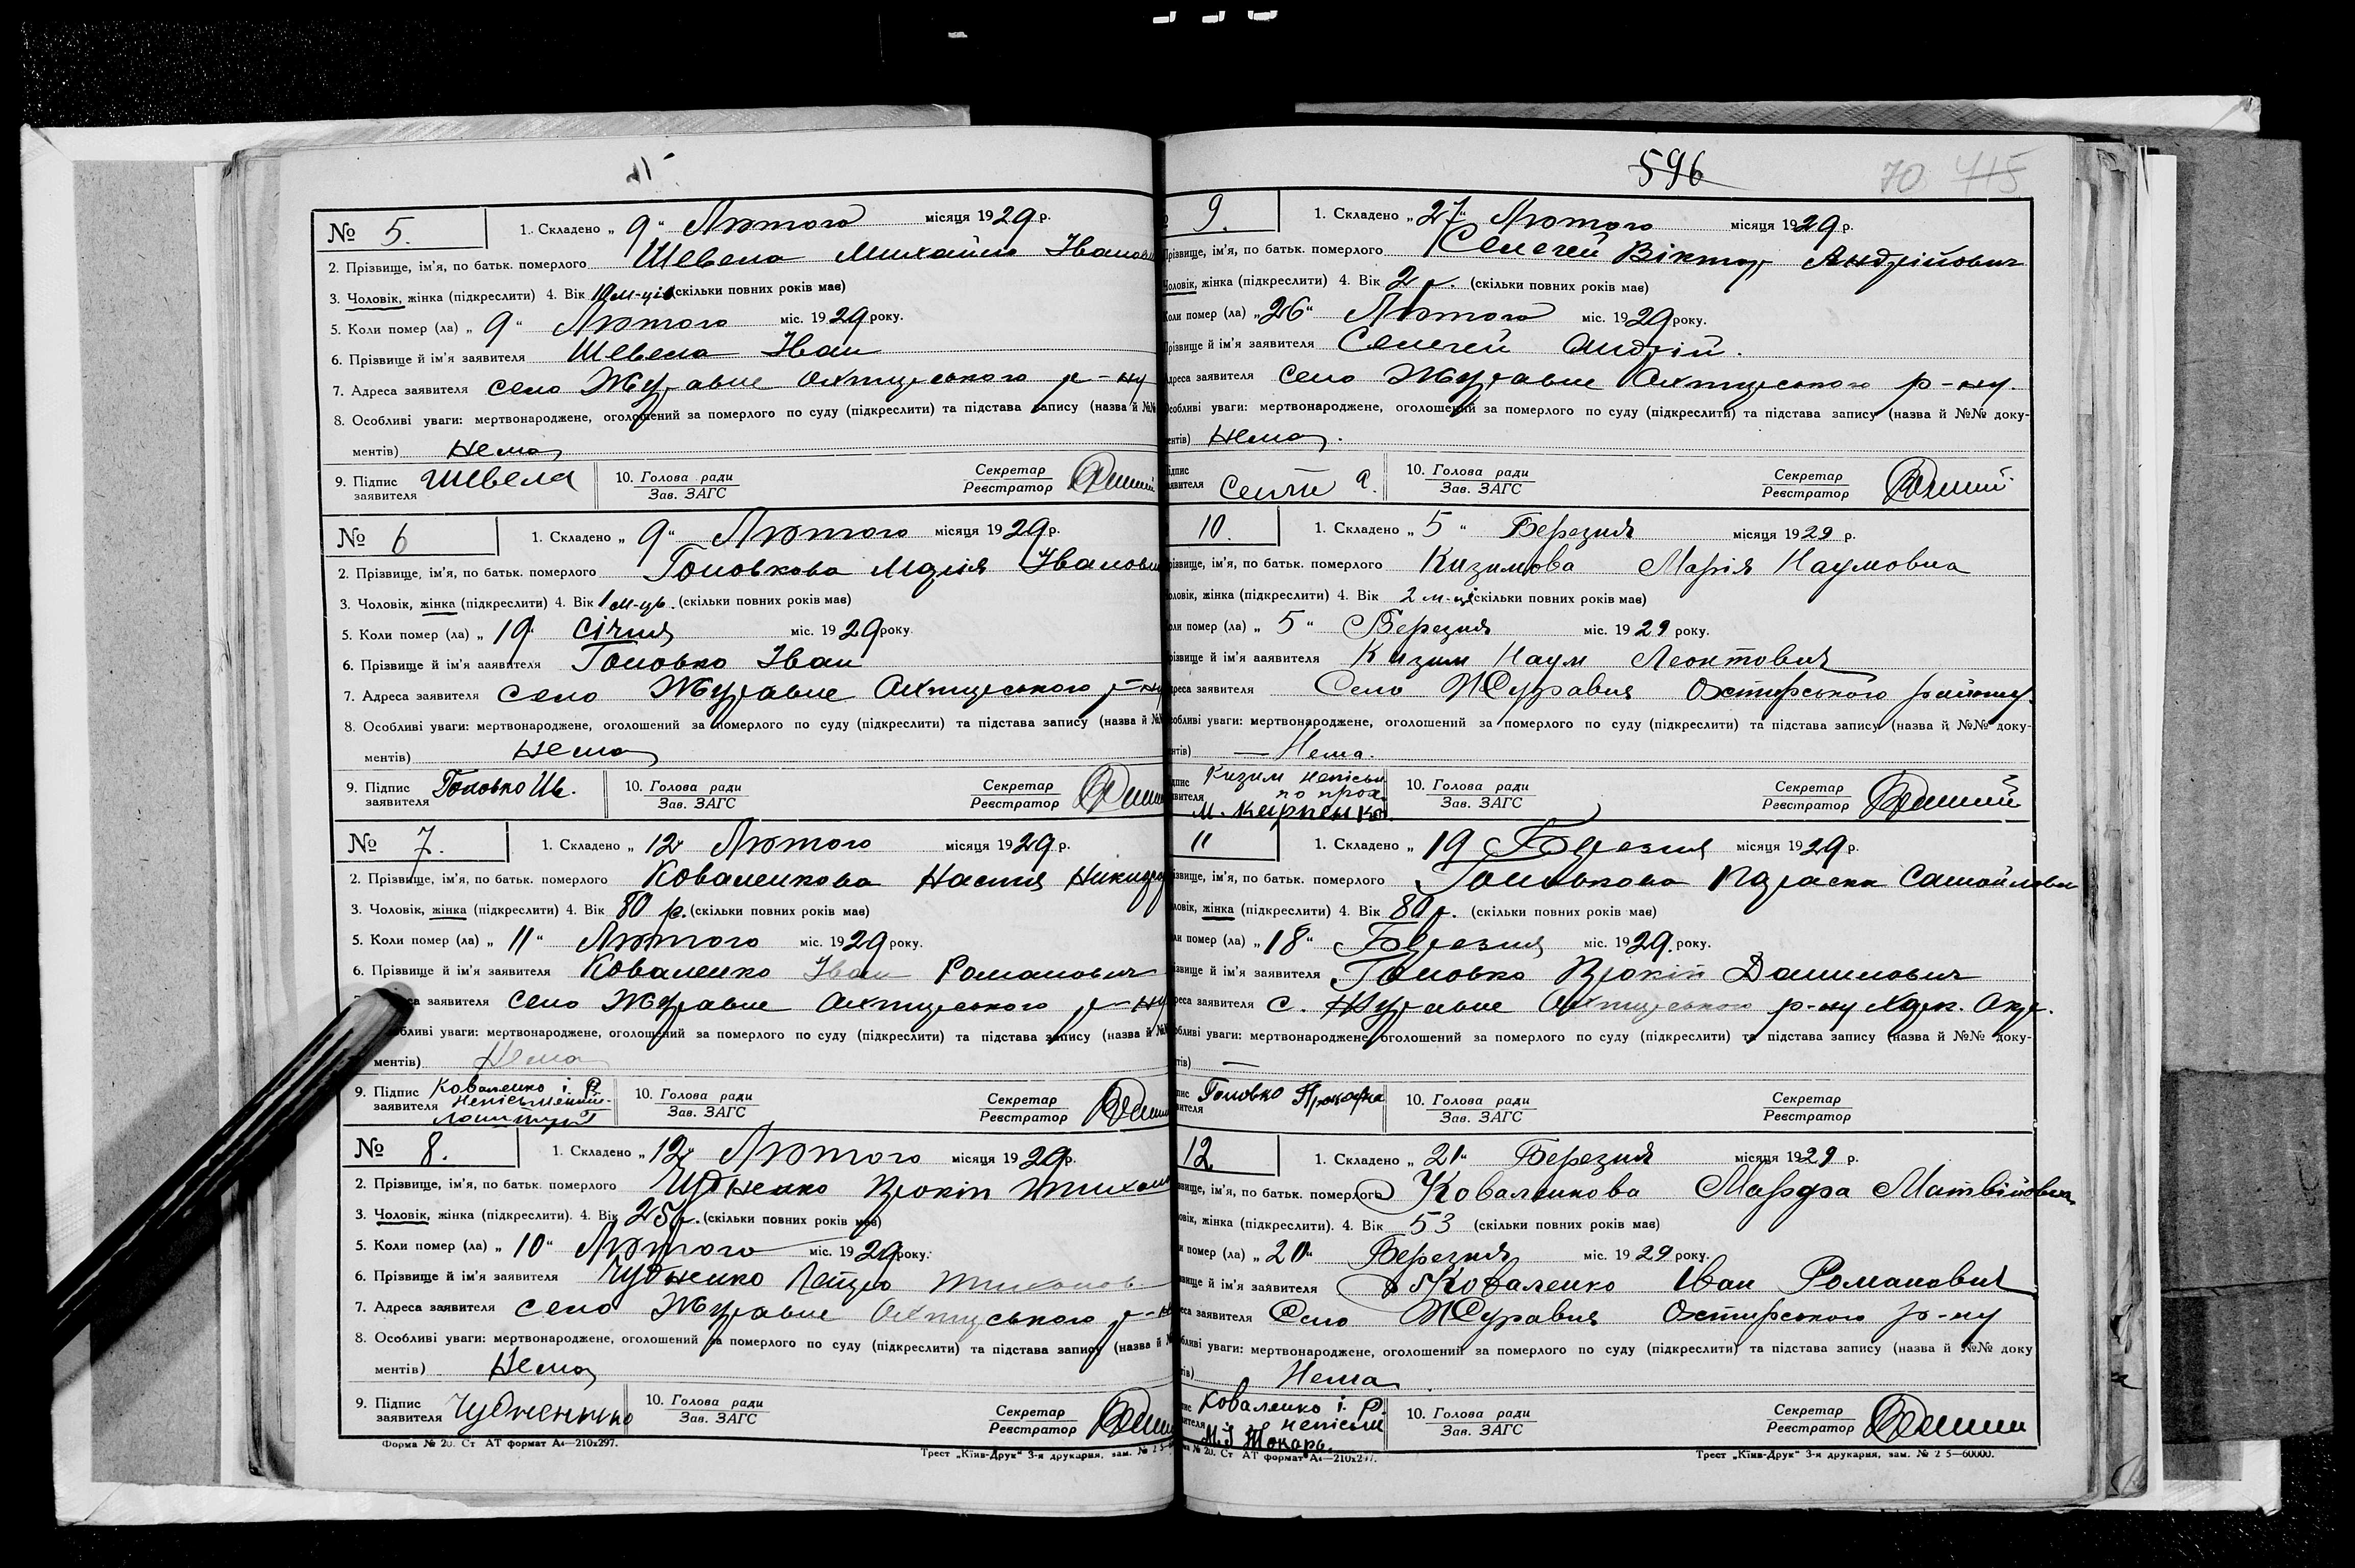 № 5. 1. Складено „ 9 “ Лютого місяця 1929 р.
2. Прізвище, ім'я, по батьк. померлого Шевела Михайло Іванови
3. Чоловік, жінка (підкреслити) 4. Вік 10 м-ців (скільки повних років має)
5. Коли помер (ла) „ 9 “ Лютого міс. 1929 року.
6. Прізвище й ім'я заявителя Шевела Іван
7. Адреса заявителя село Журавне Охтирського р-ну
8. Особливі уваги: мертвонароджене, оголошений за померлого по суду (підкреслити) та підстава запису (назва й №№
ментів) Нема
9. Підпис заявителя Шевела 10. Голова ради Зав. ЗАГС Секретар Реєстратор
№ 6 1. Складено „ 9 “ Лютого місяця 1929 р.
2. Прізвище, ім'я, по батьк. померлого Головкова Марія Івановн
3. Чоловік, жінка (підкреслити) 4. Вік 1 м-ць. (скільки повних років має)
5. Коли помер (ла) „ 19 “ Січня міс. 1929 року.
6. Прізвище й ім'я заявителя Головко Іван
7. Адреса заявителя село Журавне Охтирського р-ну
8. Особливі уваги: мертвонароджене, оголошений за померлого по суду (підкреслити) та підстава запису (назва й №№
ментів) Нема
9. Підпис заявителя Головко Ив. 10. Голова ради Зав. ЗАГС Секретар Реєстратор
№ 7. 1. Складено „ 12 Лютого місяця 1929 р.
2. Прізвище, ім'я, по батьк. померлого Коваленкова Настя
3. Чоловік, жінка (підкреслити) 4. Вік 80 р. (скільки повних років має)
5. Коли помер (ла) „ 11 “ Лютого міс. 1929 року.
6. Прізвище й ім'я заявителя Коваленко Іван Романович
са заявителя село Журавне Охтирського р-ну
бливі уваги: мертвонароджене, оголошений за померлого по суду (підкреслити) та підстава запису (назва й №
ментів) Нема
9. Підпис заявителя Коваленко і. Р. Неписьменний 10. Голова ради Зав. ЗАГС Секретар Реєстратор
№ 8. 1. Складено „ 12 Лютого місяця 1929 р.
2. Прізвище, ім'я, по батьк. померлого Чудненко Прокіп
3. Чоловік, жінка (підкреслити). 4. Вік 25 р. (скільки повних років має)
5. Коли помер (ла) „ 10 “ Лютого міс. 1929 року.
6. Прізвище й ім'я заявителя Чудненко Петро Тихонов
7. Адреса заявителя село Журавне Охтирського р-н
8. Особливі уваги: мертвонароджене, оголошений за померлого по суду (підкреслити) та підстава запису (назва й №
ментів) Нема
9. Підпис заявителя Чудненко 10. Голова ради Зав. ЗАГС Секретар Реєстратор
Форма № 20. Ст АТ формат А4—210х297. Трест „Київ-Друк“ 3-я друкарня, зам. № 2 5
596 70 415
9. 1. Складено „ 27 “ Лютого місяця 1929 р.
Прізвище, ім'я, по батьк. померлого Селегей Віктор Андрійович
Чоловік, жінка (підкреслити) 4. Вік 2 р. (скільки повних років має)
Коли помер (ла) „ 26 “ Лютого міс. 1929 року.
Прізвище й ім'я заявителя Селегей Андрій.
Адреса заявителя село Журавне Охтирського р-ну.
Особливі уваги: мертвонароджене, оголошений за померлого по суду (підкреслити) та підстава запису (назва й №№ доку-
ентів) Нема.
10. Голова ради Зав. ЗАГС Секретар Реєстратор
10. 1. Складено „ 5 “ Березня місяця 1929 р.
різвище, ім'я, по батьк. померлого Кизимова Марія Наумовна
оловік, жінка (підкреслити) 4. Вік 2 м-ці (скільки повних років має)
оли помер (ла) „ 5 “ Березня міс. 1929 року.
різвище й ім'я заявителя Кизим Наум Леонтович
дреса заявителя Село Журавня Охтирського району.
собливі уваги: мертвонароджене, оголошений за померлого по суду (підкреслити) та підстава запису (назва й №№ доку-
нтів) — Нема.
Кизим неписьм. по прох. М. Карпенко 10. Голова ради Зав. ЗАГС Секретар Реєстратор
11 1. Складено „ 19 Березня місяця 1929 р.
ізвище, ім'я, по батьк. померлого Головкова Параска Самойловн
ловік, жінка (підкреслити) 4. Вік 80 р. (скільки повних років має)
ли помер (ла) „ 18 “ Березня міс. 1929. року.
ізвище й ім'я заявителя Головко Прокіп Данилович
реса заявителя с. Журавне Охтирського р-ну Харк. Окр.
обливі уваги: мертвонароджене, оголошений за померлого по суду (підкреслити) та підстава запису (назва й №№ доку-
тів) —
Головко 10. Голова ради Зав. ЗАГС Секретар Реєстратор
12 1. Складено „ 21 “ Березня місяця 1929 р.
звище, ім'я, по батьк. померлого Коваленкова Марфа Матвійовна
овік, жінка (підкреслити). 4. Вік 53 (скільки повних років має)
и помер (ла) „ 20 “ Березня міс. 1929 року.
звище й ім'я заявителя Коваленко Іван Романович
еса заявителя Село Журавня Охтирського р-ну
бливі уваги: мертвонароджене, оголошений за померлого по суду (підкреслити) та підстава запису (назва й №№ доку
ів) Нема
Коваленко і. Р. неписьм М. І Токарь. 10. Голова ради Зав. ЗАГС Секретар Реєстратор
№ 20. Ст АТ формат А4—210х297. Трест „Київ-Друк“ 3-я друкарня, зам. № 2 5—60000.